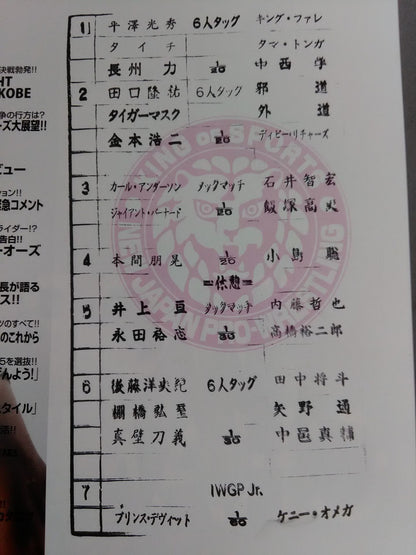 決戦勃発!!
HT
KOBE
争の行方は?
ーズ大展望!!
ビュー
ション!!
緊急コメント
ライダー!?
告白!!
・オーズ
長が語る
ス!!
ツのすべて!!
のこれから
5を選抜!!
げんよう!」
タイル」
活!!
!!
1 平澤光秀 6人タッグ キング・ファレ
タイチ タマ・トンガ
長州 力 1/20 中西 学
2 田口隆祐 6人タッグ 邪道
タイガーマスク 外道
金本浩二 1/20 デイビー・リチャーズ
3 カール・アンダーソン タッグマッチ 石井智宏
ジャイアント・バーナード 1/20 飯塚高史
4 本間朋晃 1/20 小島 聡
=休憩=
5 井上 亘 タッグマッチ 内藤哲也
永田裕志 1/30 高橋裕二郎
6 後藤洋央紀 6人タッグ 田中将斗
棚橋弘至 矢野 通
真壁刀義 1/30 中邑真輔
7 IWGP Jr.
プリンス・デヴィット 1/60 ケニー・オメガ
KING OF SPORTS
NEW JAPAN PRO-WRESTLING